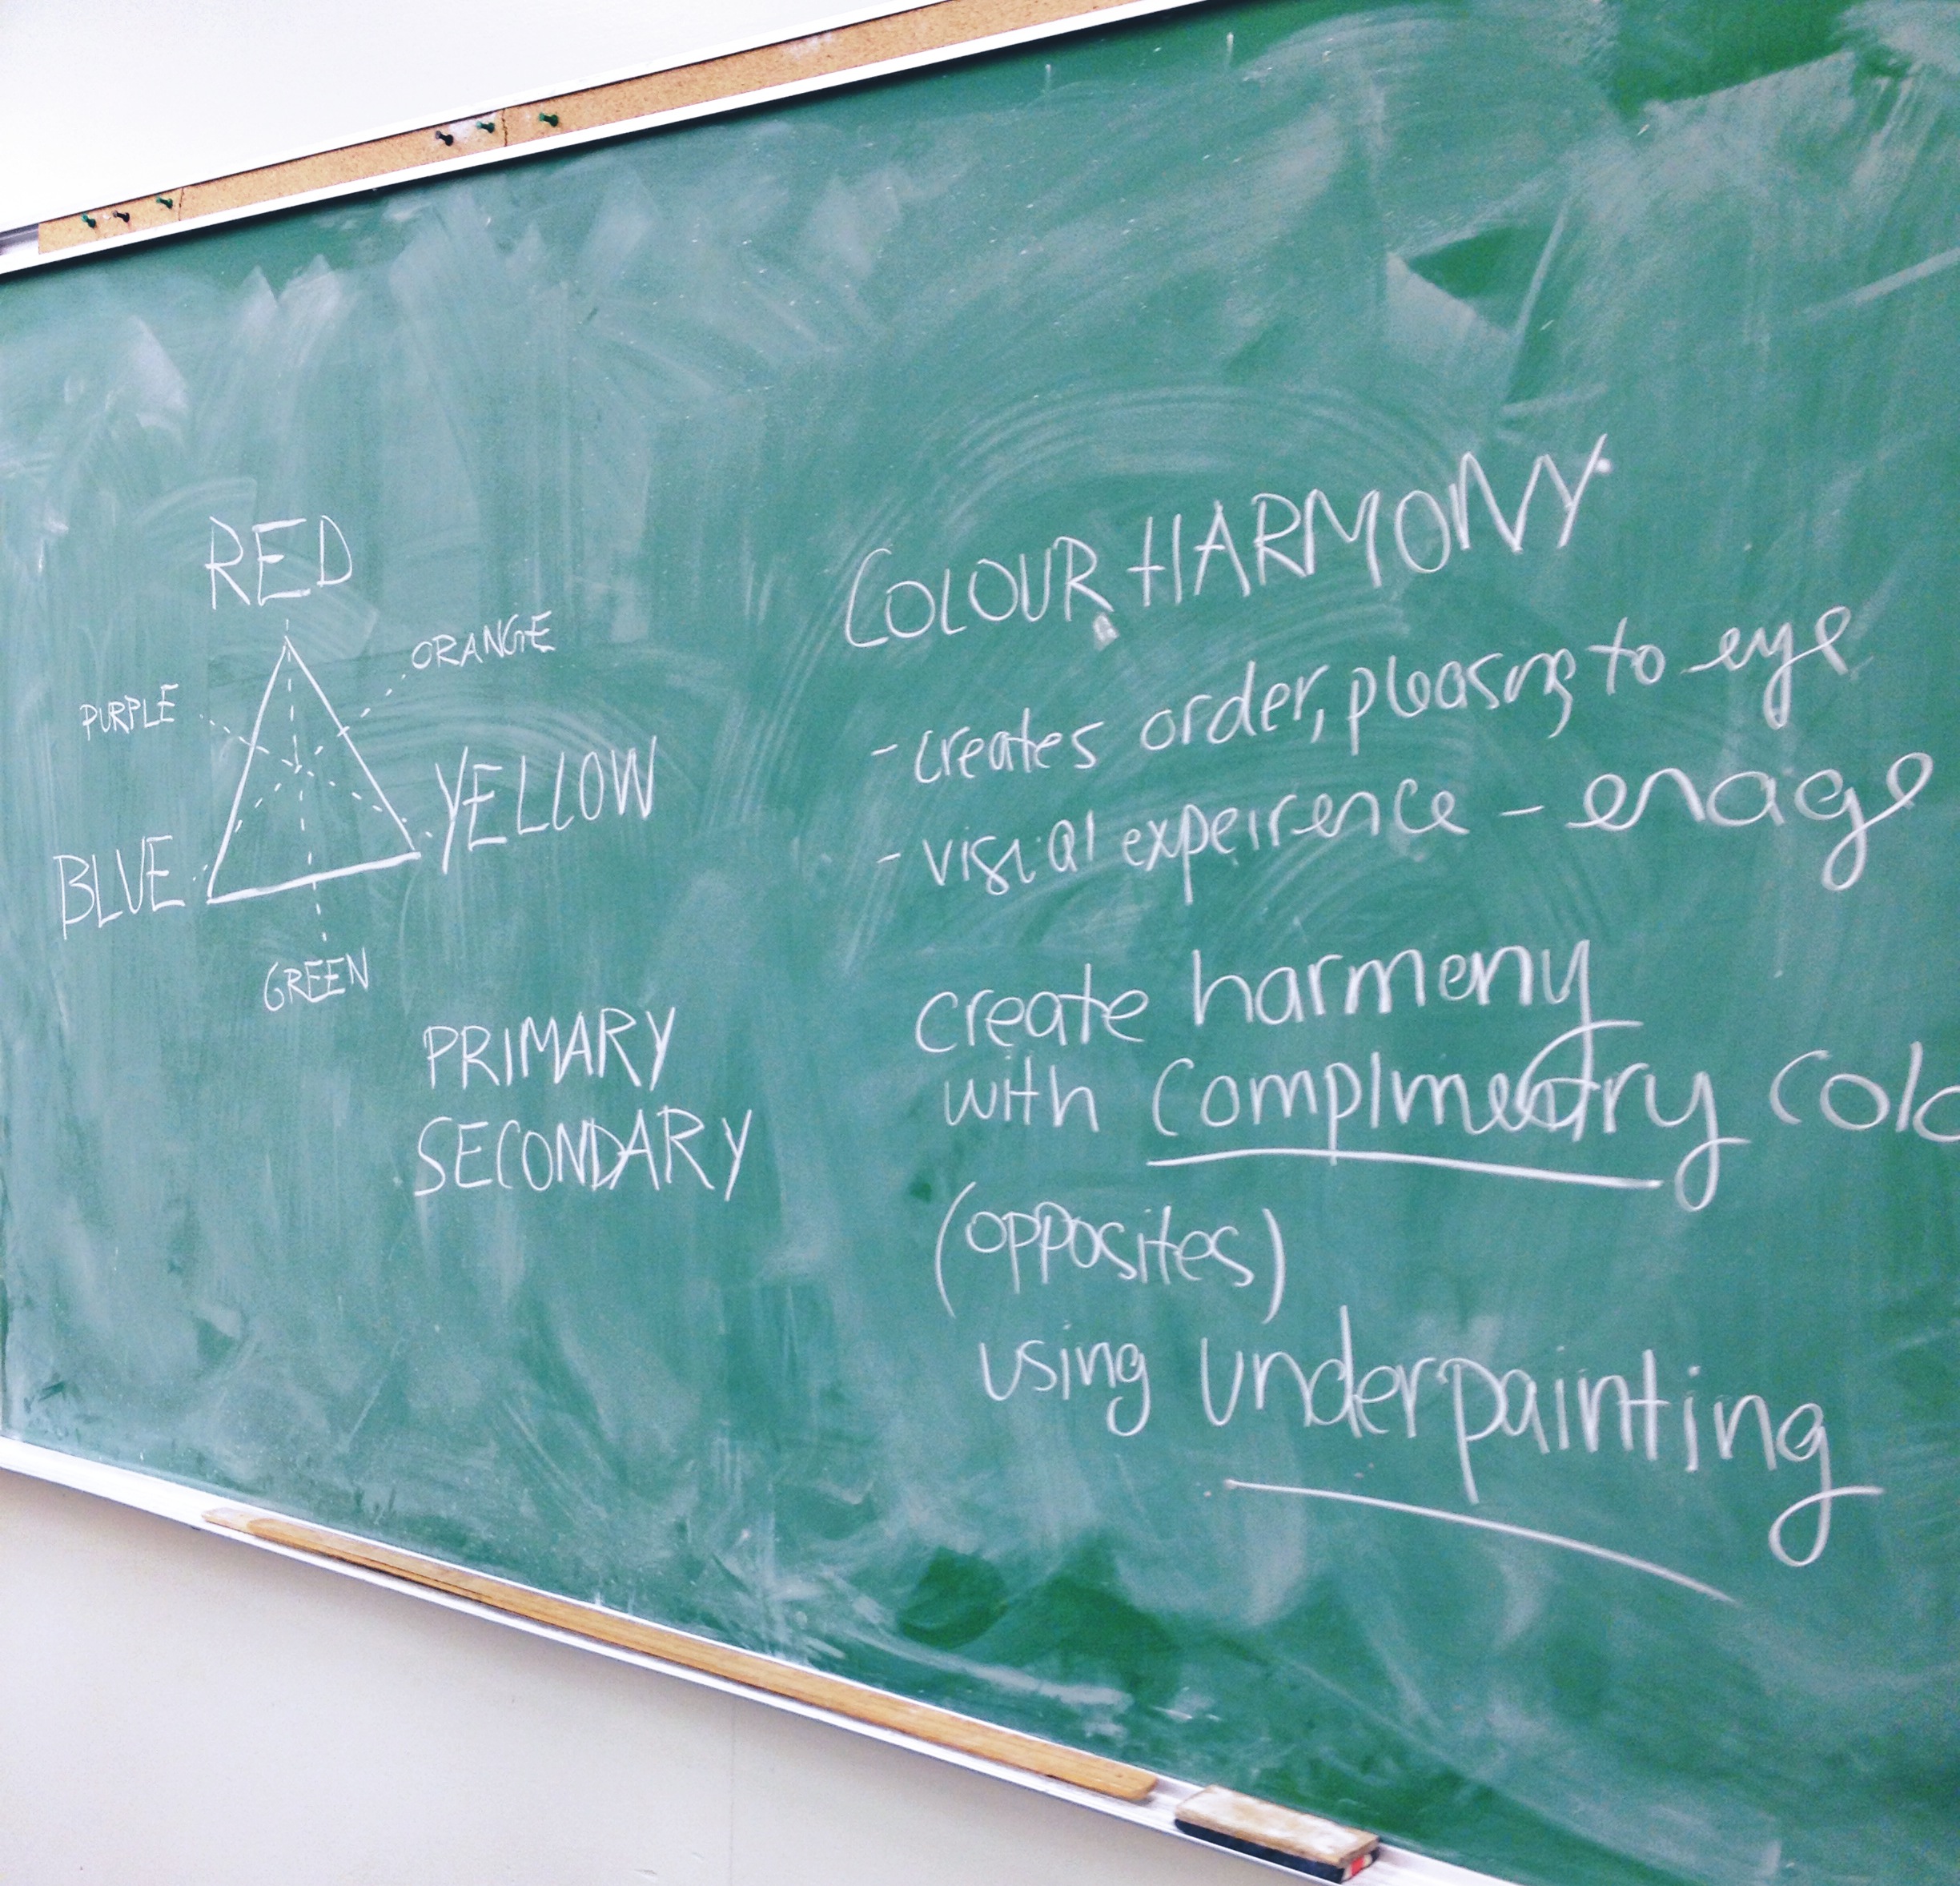 RED
ORANGE
PURPLE
YELLOW
BLUE
GREEN
PRIMARY
SECONDARY
COLOUR HARMONY
- creates order, pleasing to eye
- visual expeirence - enage
create harmony
with complimentry colo
(opposites)
using underpainting